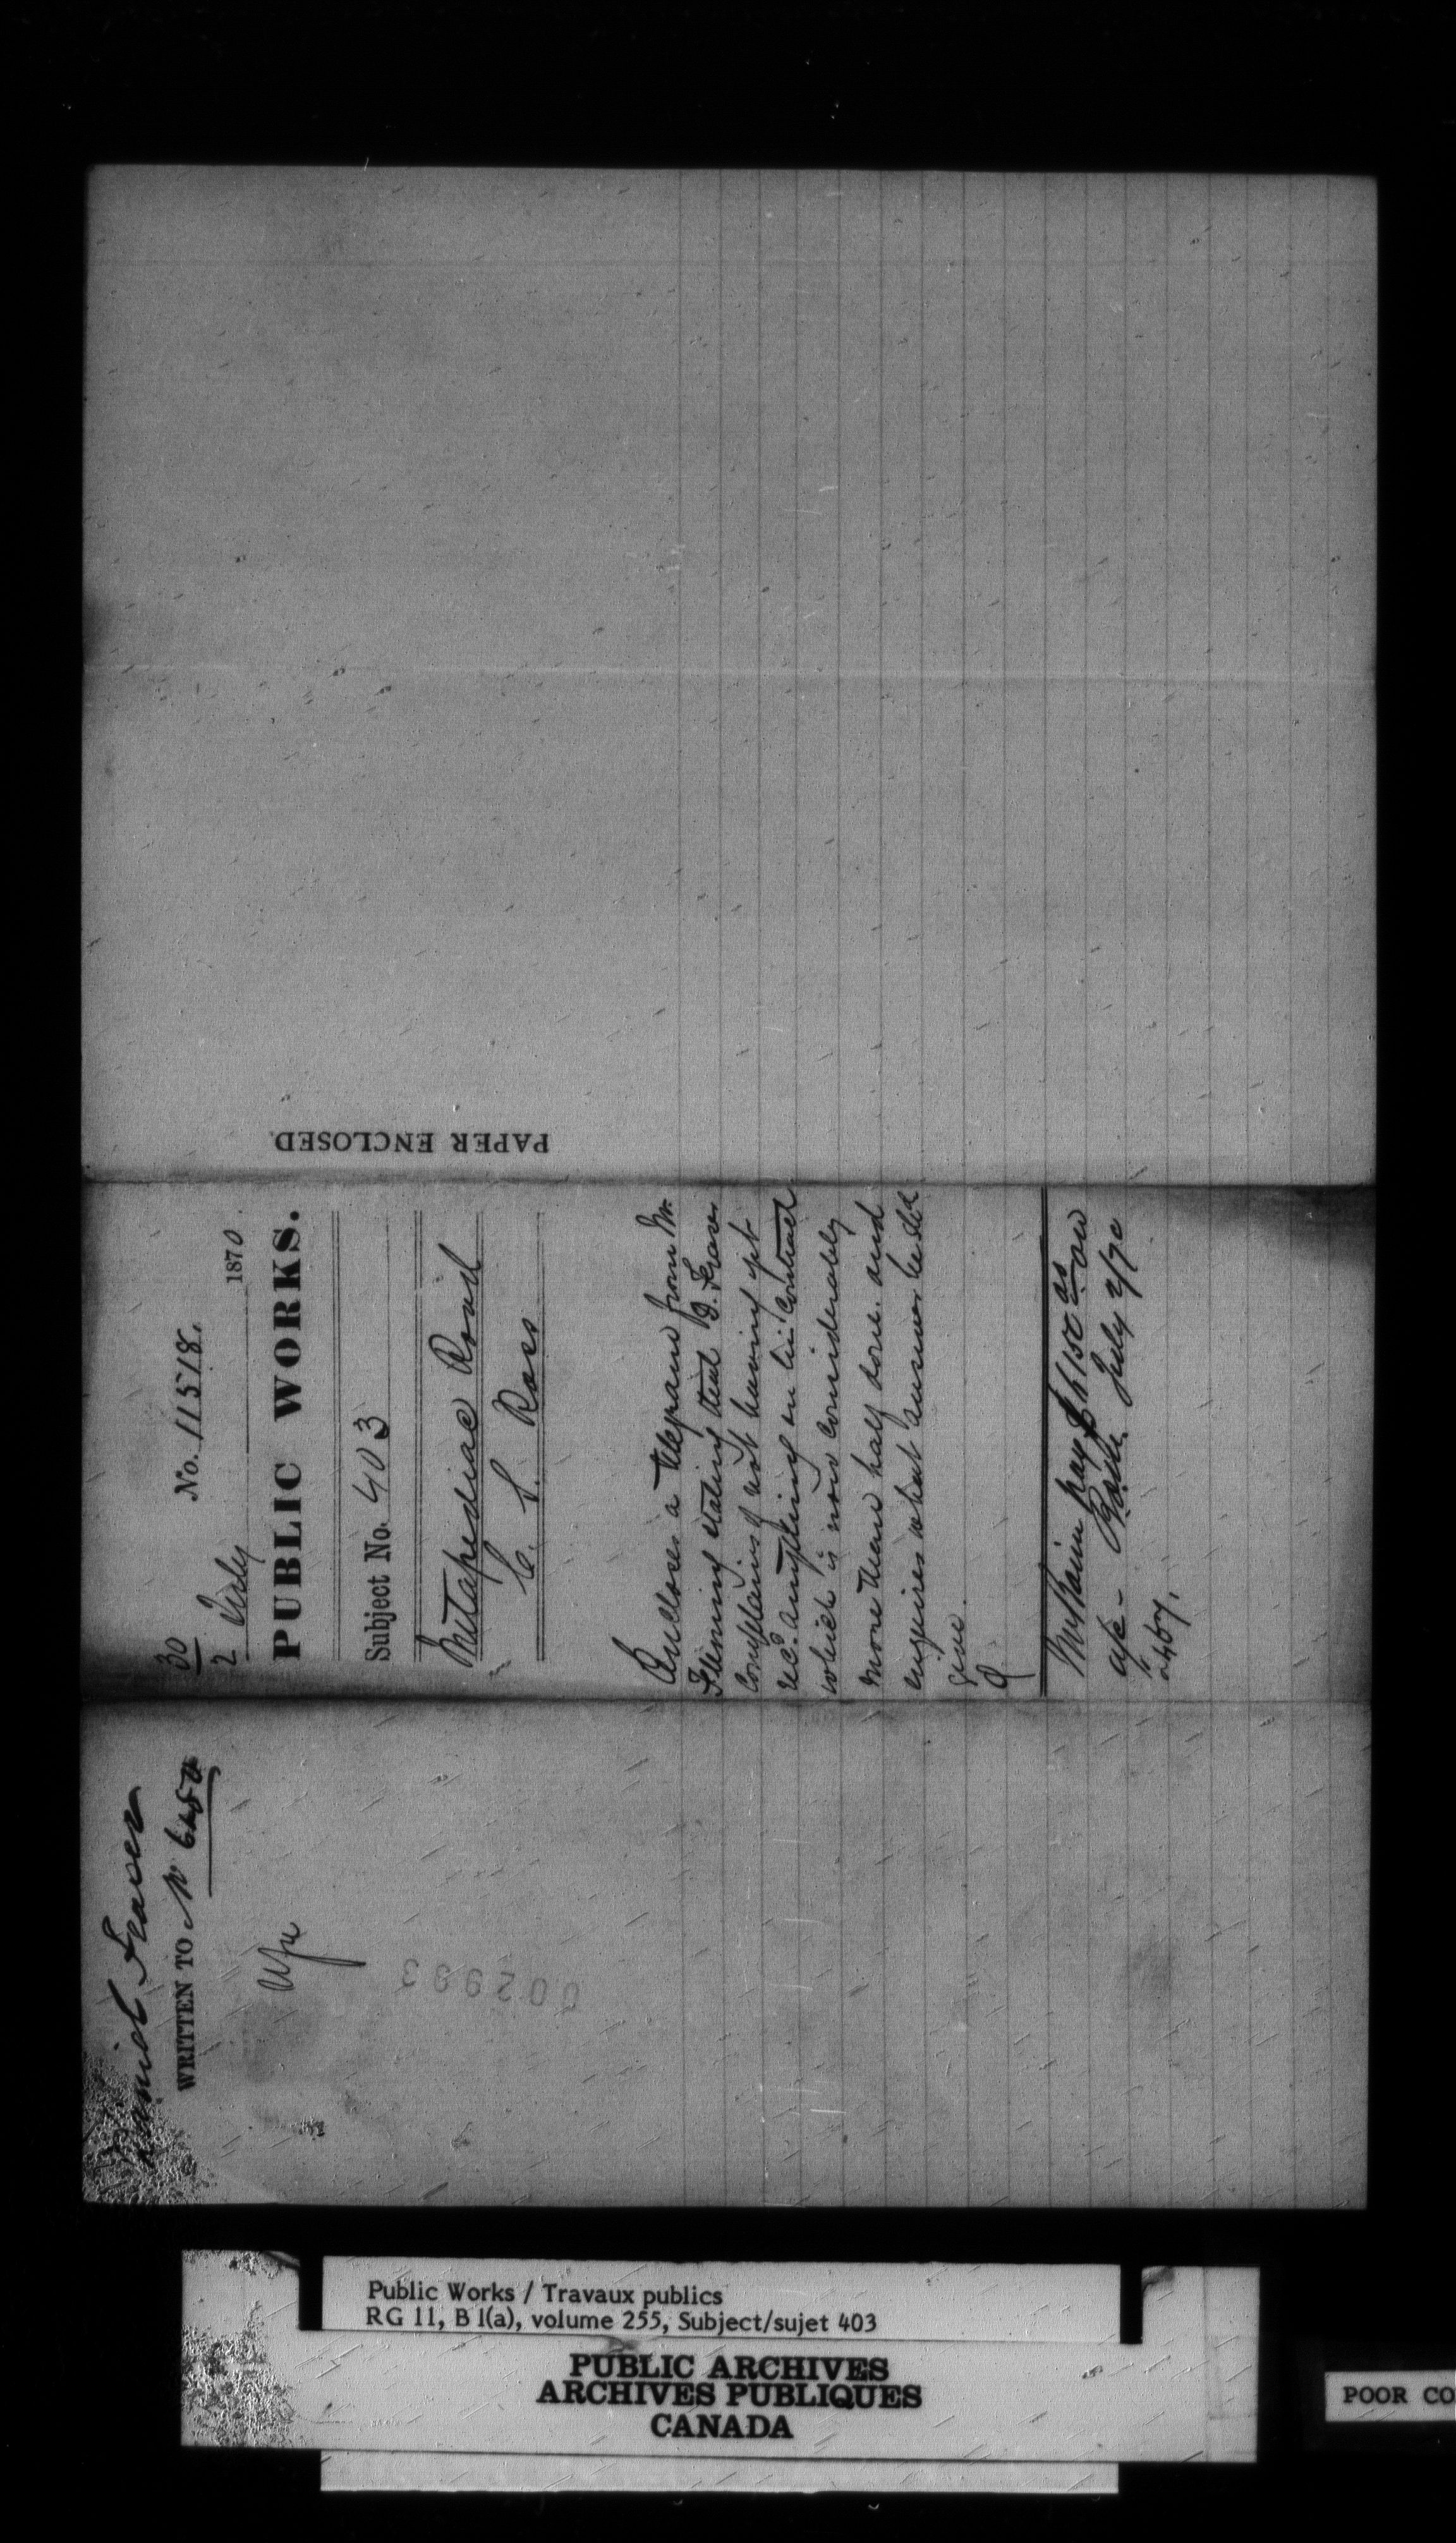 Daniel Fraser
WRITTEN TO No 6480
002993
30
2 July
No. 11518.
1870
PUBLIC WORKS.
Subject No. 403
Metapediac Road
C. S. Ross
Encloses a telegram from Mr
Fleming stating that D. Fraser
complains of not having yet
recd. anything on his contract
which is now considerably
more than half done. and
enquires what answer he shd
give.
pay $150 as
July 2/70
PAPER ENCLOSED
Public Works / Travaux publics
RG 11, B 1(a), volume 255, Subject/sujet 403
PUBLIC ARCHIVES
ARCHIVES PUBLIQUES
CANADA
POOR CO